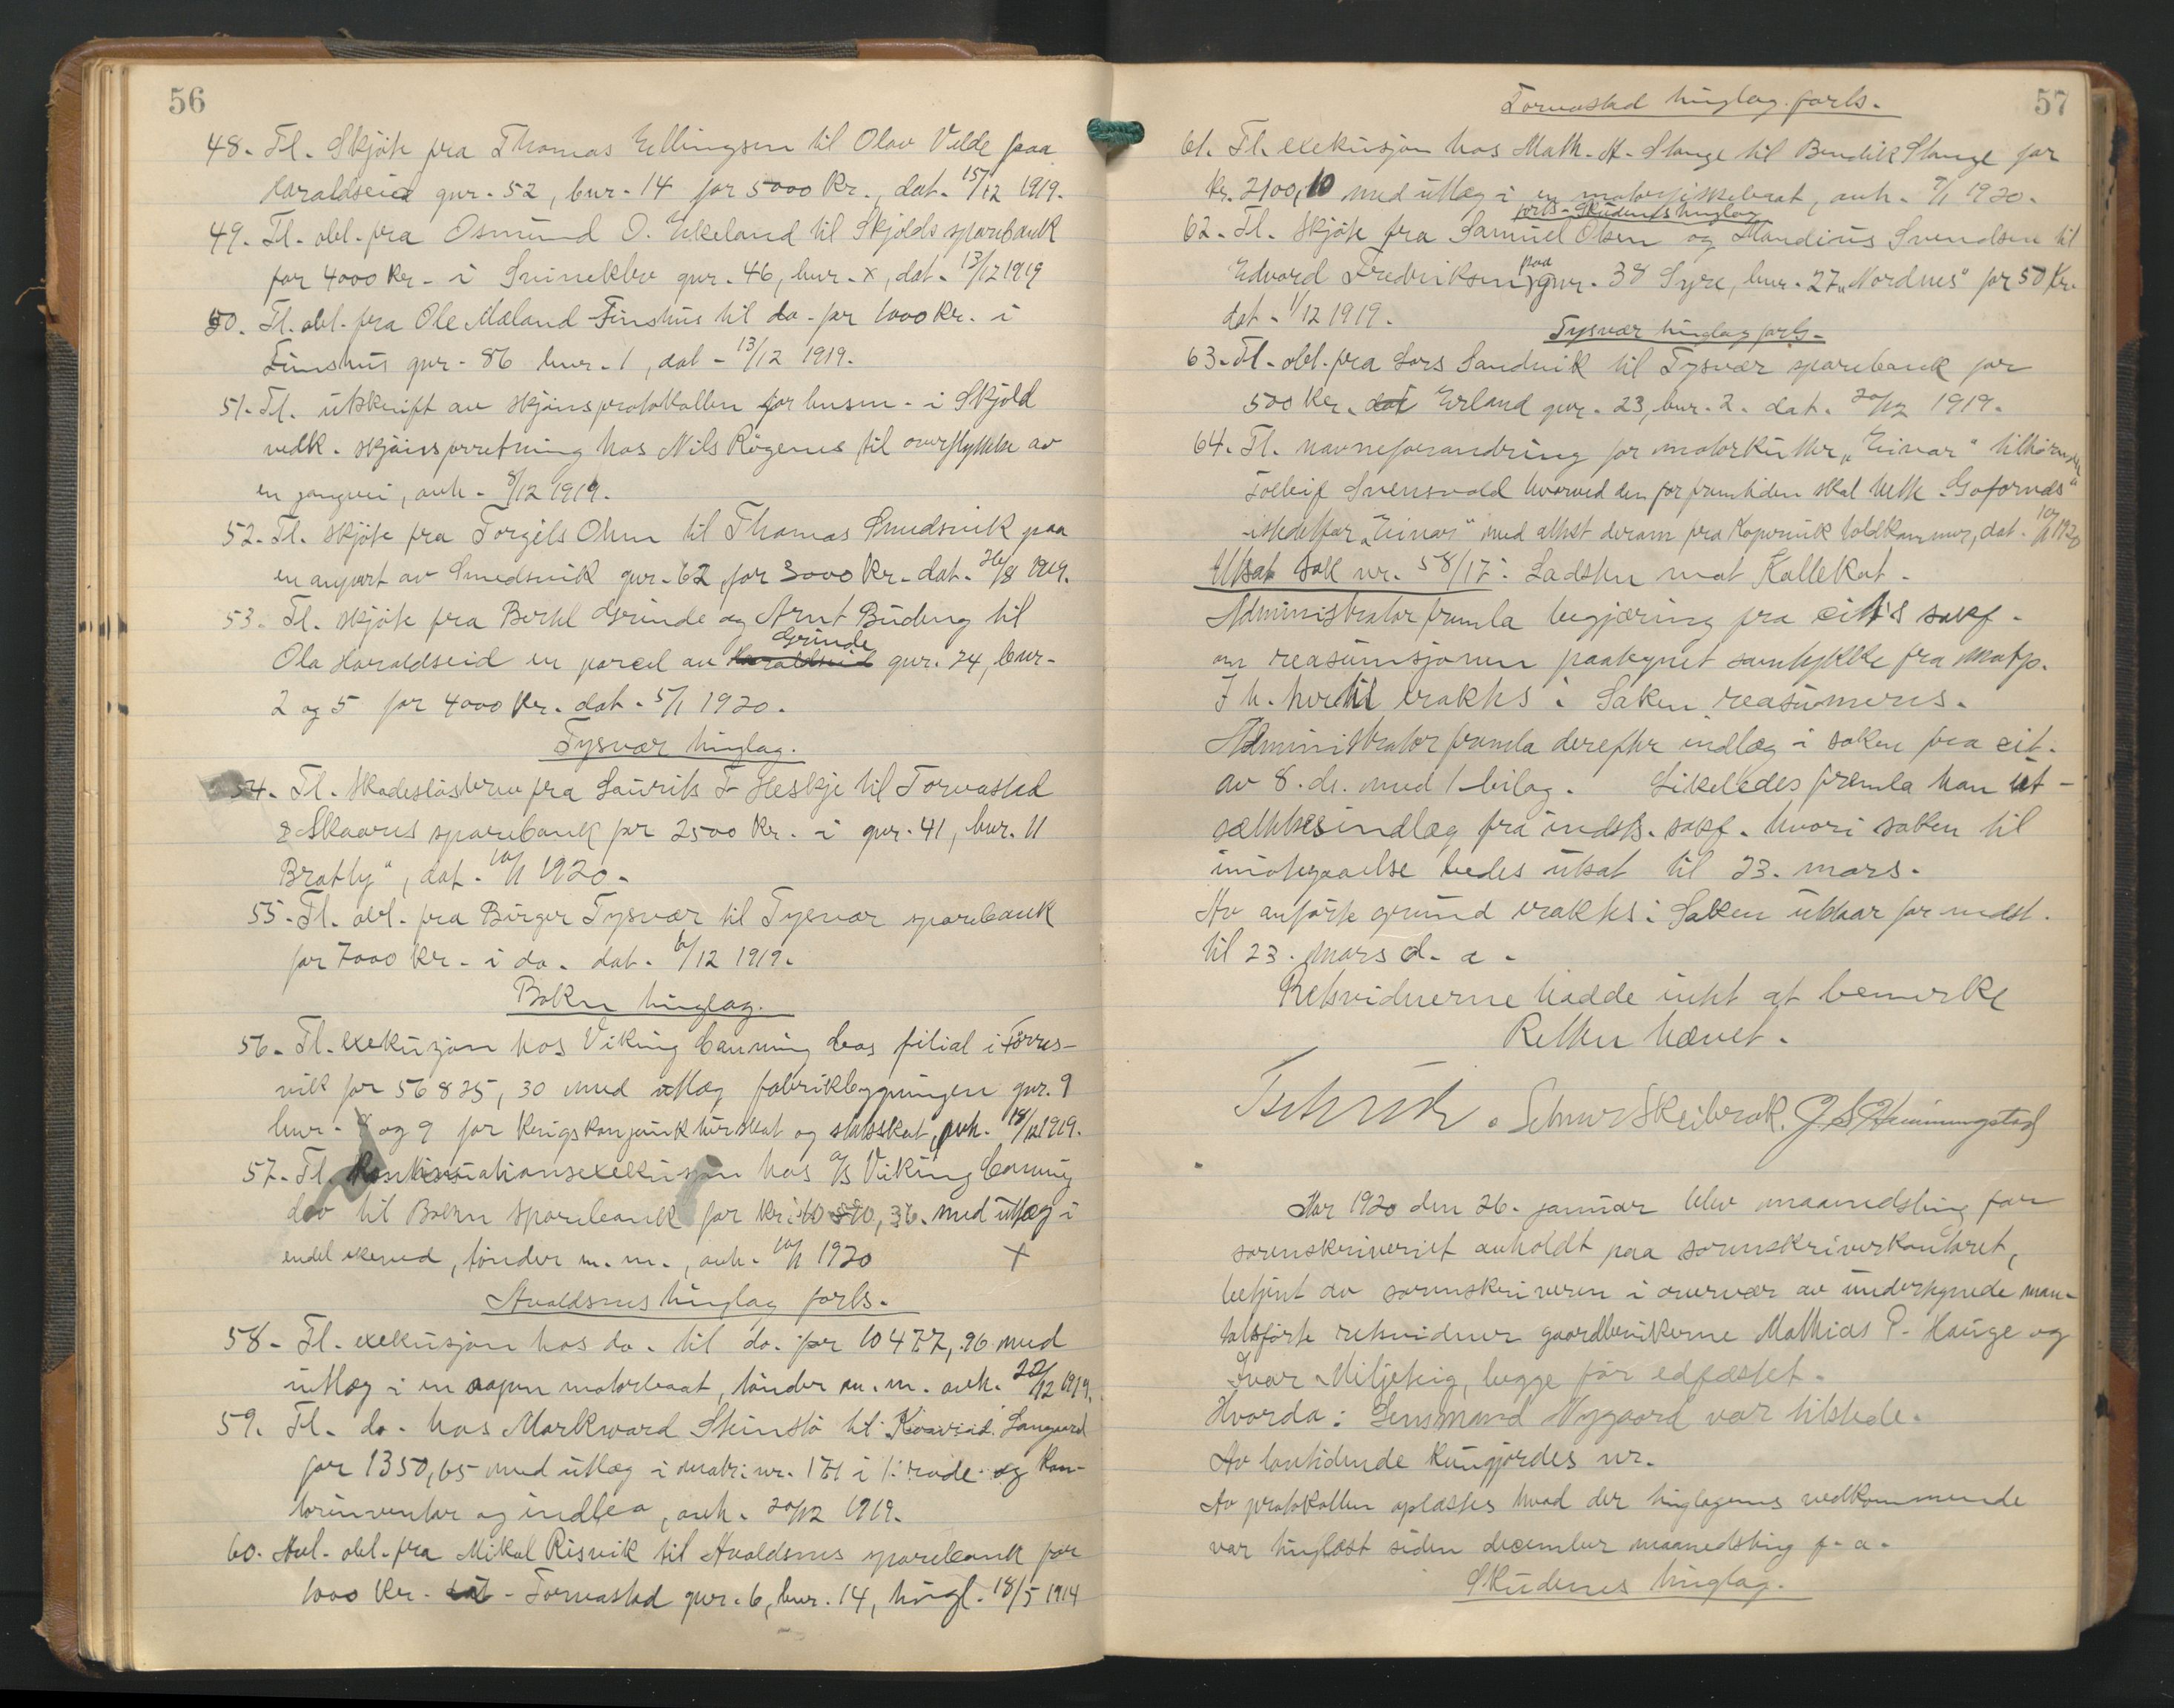 56
48. Tl. Skjöte fra Thomas Ellingsen til Olav Velde paa
Haraldseid gnr. 52, bnr. 14 for 5000 kr., dat. 15/12 1919.
49. Tl. obl. fra Osmund O. Ekeland til Skjolds sparebank
for 4000 kr. i Svineklev gnr. 46, bnr. x, dat. 13/12 1919
50. Tl. obl. fra Ole Mæland Finshus til do. for 1000 kr. i
Finshus gnr. 86 bnr. 1, dat. 13/12 1919.
51. Tl. utskrift av skjönsprotokollen for lensm. i Skjold
vedk. skjönsforretning hos Nils Rögenes til overflyttelse av
en gangvei, avh. 8/12 1919.
52. Tl. skjöte fra Torgils Olsen til Thomas Smedsvik paa
en anpart av Smedsvik gnr. 62, for 3000 kr. dat. 26/8 1919.
53. Tl. skjöte fra Bertel Grinde og Arnt Budeng til
Grinde
Ola Haraldseid en parcel av Haraldseid gnr. 24, bnr.
2 og 5 for 4000 kr. dat. 5/1 1920.
Tysvær tinglag.
54. Tl. skadeslösbrev fra Laurits T. Heskje til Torvastad
& Skaares sparebank for 2500 kr. i gnr. 41, bnr. 11
Bratly", dat. 10/1 1920.
55. Tl. obl. fra Birger Tysvær til Tysvær sparebank
for 7000 kr. i do. dat. 6/12 1919.
Bokn tinglag.
56. Tl. exekusjon hos Viking Canning Cos filial i Förres-
vik for 56825,30 med utlæg fabrikbygningen gnr. 9
bnr. 8 og 9 for krigskonjunkturskat og statsskat, avh. 18/12 1919.
57. Tl. Kontinuationsexekusjon hos A/S Viking Canning
Co til Bokn sparebank for kr. 10 510,36. med utlæg i
endel ekeved, tönder m. m., avh. 10/1 1920 +
Avaldsnes tinglag forts.
58. Tl. exekusjon hos do. til do. for 10477,96 med
utlæg i en aapen motorbaat, tönder m. m. avh. 22/12 1919.
59. Tl. do. hos Markvard Steinstö til Konrad Langaard
for 1350,65 med utlæg i matr. nr. 171 i 1. rode og kon-
torinventar og indbo, avh. 20/12 1919.
60. Avl. obl. fra Mikal Risvik til Avaldsnes sparebank for
1000 kr. dat - Torvastad gnr. 6, bnr. 14, tingl. 18/5 1914
57
Torvastad tinglag forts.
61. Tl. exekusjon hos Math. A. Stange til Bendik Stange for
kr. 2100,10 med utlæg i en motorfiskebaat, avh. 9/1 1920.
forts. Skudenes tinglag
62. Tl. skjöte fra Samuel Olsen og Mandius Svendsen til
paa
Edvard Fredriksen gnr. 38 Syre, bnr. 27 „Nordnes" for 50 kr.
dat. 1/12 1919.
Tysvær tinglag forts.
63. Tl. obl. fra Lars Sandvik til Tysvær sparebank for
500 kr. dat Erland gnr. 23, bnr. 2. dat. 20/12 1919.
64. Tl. navneforandring for motorkutter „Einar" tilhörende
Tolleif Svensvold hvorved den for fremtiden skal hete „Gofornæs"
istedetfor „Einar" med attest derom fra Kopervik toldkammer, dat. 10/1 1920
Utsat sak nr. 58/17: Ladsten mot Kallekot.
Administrator fremla begjæring fra cit's sakf.
om reasumsjonen paategnet samtykke fra motp.
I h. hvortil vaktes: Saken reasumeres.
Administrator fremla derefter indlæg i saken fra cit.
av 8. ds. med 1 bilag. Likeledes fremla han ut-
sættelsesindlæg fra indst. sakf. hvori saken til
imötegaaelse bedes utsat til 23. mars.
Av anförte grund vaktes: Saken utstaar for indst.
til 23. mars d. a.
Retsvidnerne hadde intet at bemerke
Retten hævet.
Schnev Skeibrok. J. S. Hemmingstad
Aar 1920 den 26. januar blev maanedsting for
sorenskriveriet avholdt paa sorenskriverkontoret,
betjent av sorenskriveren i overvær av undertegnede man-
talsförte retsvidner gaardbrukerne Mathias P. Hauge og
Ivar Miljeteig, begge för edfæstet.
Hvorda: Lensmand Nygaard var tilstede.
Av lovtidende kungjordes nr.
Av protokollen oplæstes hvad der tinglagenes vedkommende
var tinglæst siden december maanedsting f. a.
Skudenes tinglag.